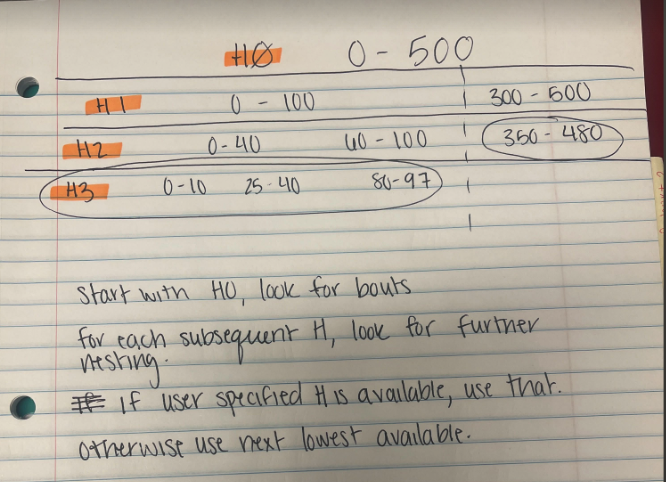 HØ 0 - 500
H1 0 - 100 300 - 500
H2 0-40 40 - 100 350 - 480
H3 0-10 25-40 80-97
Start with H0, look for bouts
for each subsequent H, look for further
nesting.
If if user specified H is available, use that.
otherwise use next lowest available.